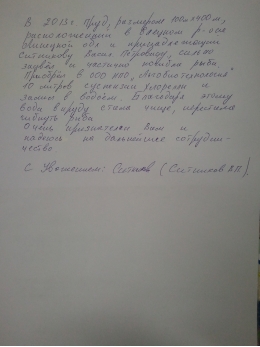 В 2013г Пруд, размером 100м×400м,
расположенный в Омском р-не
Омской обл и принадлежащий
Ситникову Васил Петровичу, сильно
зацвёл и частично погибла рыба.
Приобрёл в ООО НПО „Альгобиотехнология"
10 литров суспензии хлореллы и
залил в водоём. Благодаря этому
вода в пруду стала чище, перестала
гибнуть рыба
Очень признателен Вам и
надеюсь на дальнейшее сотрудни-
чество
С Уважением: Ситников (Ситников В.П.)